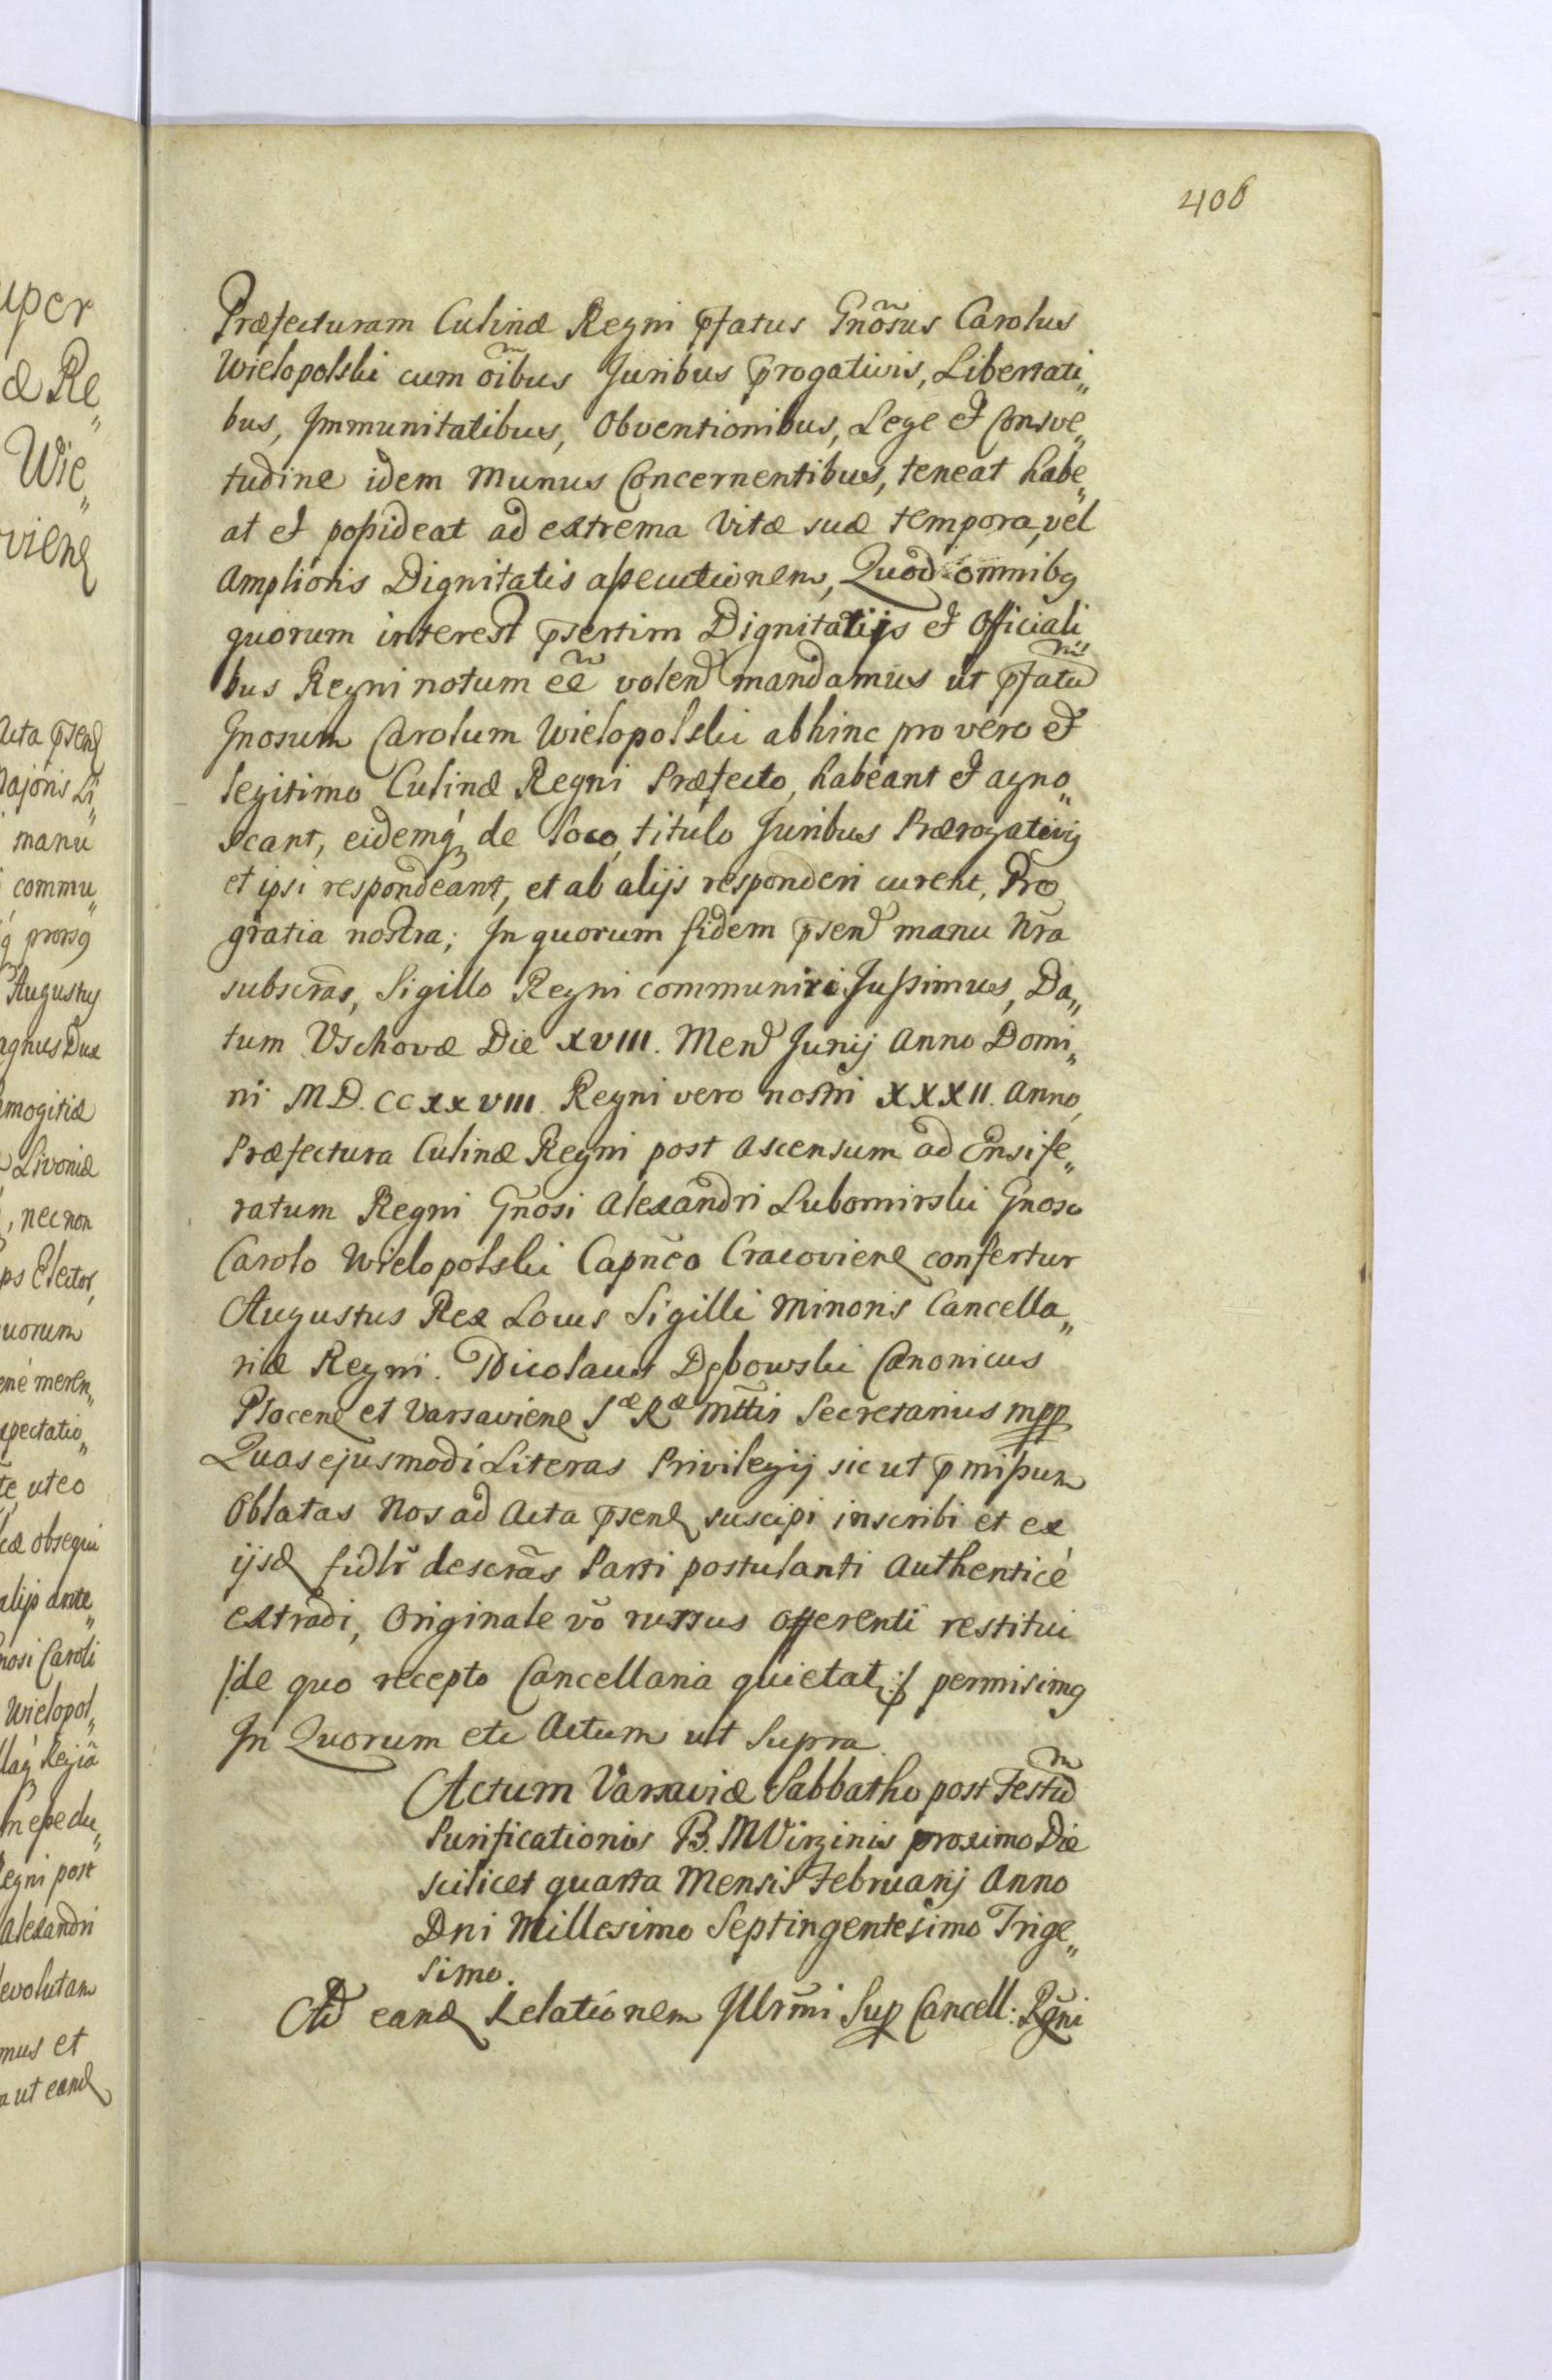 406
Præfecturam Culinæ Regni p̄fatus Gnõsus Carolus
Wielopolski cum oĩbus Juribus p̄rogativis, Libertati„
bus, Immunitatibus, Obventionibus, Lege et Consve„
tudine idem Munus Concernentibus, teneat habe„
at et poßideat ad extrema Vitæ suæ tempora, vel
Amplioris Dignitatis aßecutionem, Quod omnibq
quorum interest p̄sertim Dignitatijs et Officiali„
bus Regni notum eẽ volen͠ mandamus ut p̄fatũ
Gnosum Carolum Wielopolski abhinc pro vero et
legitimo Culinæ Regni Præfecto, habeant et agno„
scant, eidemq́ꝫ de loco, titulo Juribus Prærogativis
et ipsi respondeant, et ab alijs responderi curent, Pro
gratia nostra; In quorum fidem p̄sen͠ manu Nr̃a
subscrãs, Sigillo Regni communiri Jußimus, Da„
tum Vschovæ Die XVIII. Men͠ Junij Anno Domi„
ni M D. CC XX VIII. Regni vero nostri XXXII. Anno,
Præfectura Culinæ Regni post Ascensum ad Ensife„
ratum Regni Gñosi Alexandri Lubomirski Gnoso
Carolo Wielopolski Capñeo Cracovien̄ confertur
Augustus Rex Locus Sigilli Minoris Cancella„
riæ Regni. Nicolaus Dębowski Canonicus
Plocen̄ et Varsavien̄ Sæ Ræ Mttis Secretarius mpp
Quas ejusmodi Literas Privilegij sic ut p̄mißum
Oblatas Nos ad Acta p̄sen̄ suscipi inscribi et ex
ijsd̄ fidlr̃ descrãs Parti postulanti Authenticè
extradi, Originale võ rursus Offerenti restitui
/:de quo recepto Cancellaria quietat͠:/ permisimq
In Quorum etc Actum ut Supra
Actum Varsaviæ Sabbatho post Festũ
Purificationis B. M Virginis proximo Die
scilicet quarta Mensis Februarij Anno
Dni Millesimo Septingentesimo Trige„
simo.
Ad eand̄ Relationem Illr̃mi Sup Cancell: Rgñi
uper
æ Re„
Wie„
vien̄
Acta p̄sen̄
Majoris Li„
manu
commu„
q́ prorsq
Augustus
agnus Dux
amogitiæ
Livoniæ
, nec non
ps Elector,
uorum
enè meren„
spectatio„
te, uteo
cæ obsequi
alijs ante„
nosi Caroli
Wielopol„
Regiã
egni post
Alexandri
devolutam
mus et
ut eand̄